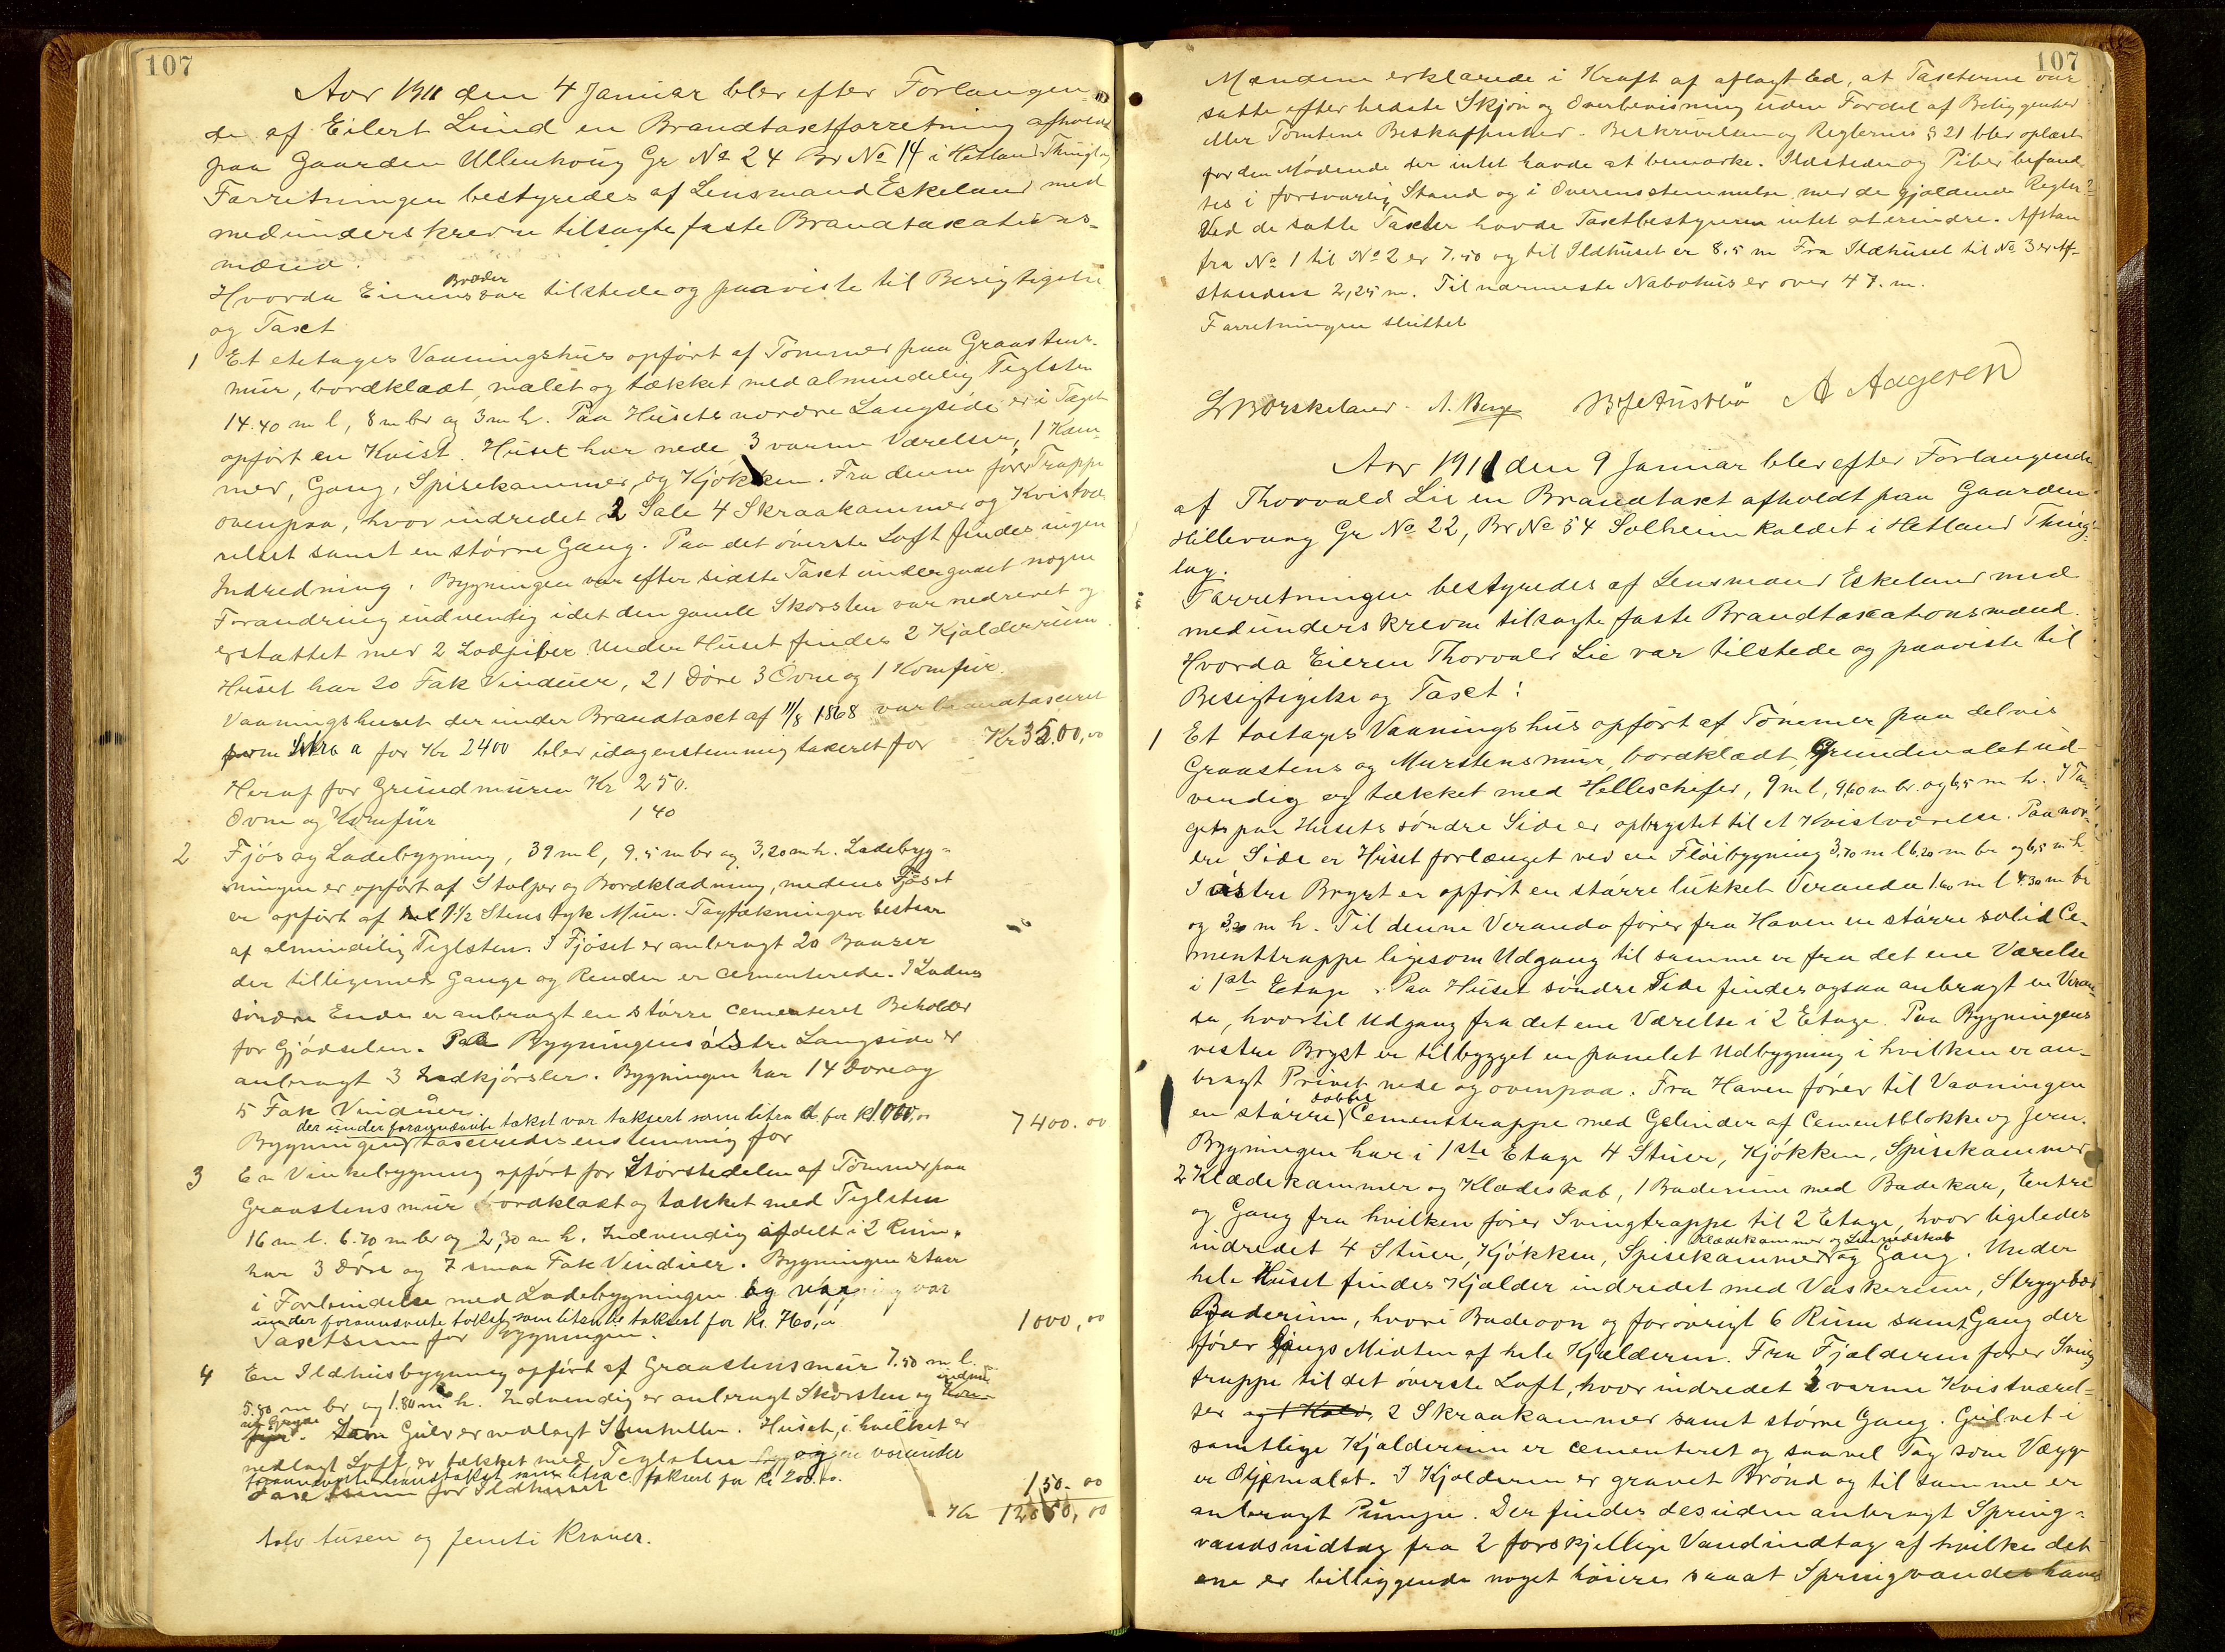 107
Aar 1911 den 4 Januar blev efter Forlangen-
de af Eilert Lund en Brandtaxtforretning afholdt
paa Gaarden Ullenhoug Gr No 24 Br No 14 i Hetland Thinglag
Forretningen bestyredes af Lensmand Eskeland med
medunderskrevne tilsagte faste Brandtaxations-
mænd.
Hvorda Eierens Broder var tilstede og paaviste til Besigtigelse
og Taxt
1 Et etetages Vaaningshus opført af Tømmer paa Graastens-
mur, bordklædt, malet og tækket med almindelig Teglsten
14.40 m l, 8 m br og 3 m h. Paa Husets nordre Langside er i Taget
opført en Kvist. Huset har nede 3 varme Værelser, 1 Kam-
mer, Gang, Spisekammer og Kjøkken. Fra denne fører Trappe
ovenpaa, hvor indredet 2 Sale 4 Skraakammer og Kvistvæ-
relset samt en større Gang. Paa det øverste Loft findes ingen
Indredning. Bygningen var efter sidste Taxt undergaaet nogen
Forandring indvendig idet den gamle Skorsten var nedrevet og
erstattet med 2 Lodpiber. Under Huset findes 2 Kjælderrum.
Huset har 20 Fak Vinduer, 21 Døre 3 Ovne og 1 Komfur.
Vaaningshuset der under Brandtaxt af 11/8 1868 var brandtaxeret
som Litra a for Kr 2400 blev idag enstemmig taxeret for Kr 3500,00
Heraf for Grundmuren Kr 250.
Ovne og Komfur 140
2 Fjøs og Ladebygning, 39 m l, 9.5 m br og 3,20 m h. Ladebyg-
ningen er opført af Stolper og Bordklædning, medens Fjøset
er opført af 1 1/2 Stens tyk Mur. Tagtækningen bestaar
af almindelig Teglsten. I Fjøset er anbragt 20 Baaser
der tilligemed Gange og Render er cementerede. I Ladens
søndre Ende er anbragt en større cementeret Beholder
for Gjødselen. Paa Bygningens østre Langside er
anbragt 3 Indkjørsler. Bygningen har 14 Døre og
5 Fak Vinduer
der under forannævnte takst var taksert som litra d for kr 1000,00
Bygningen taxeredes enstemmig for 7400.00
3 En Vinkebygning opført for Størstedelen af Tømmer paa
Graastensmur bordklædt og tækket med Teglsten
16 m l. 6.70 m br og 2,30 m h. Indvendig afdelt i 2 Rum.
har 3 Døre og 7 smaa Fak Vinduer. Bygningen staar
i Forbindelse med Ladebygningen og var
under forannævnte takst som litra b taksert for Kr. 760,00
Taxtsum for Bygningen. 1000,00
4 En Ildhusbygning opført af Graastensmur 7.50 m l.
5.80 m br og 1.80 m h. Indvendig er anbragt Skorsten og indmu-
ret Gryde. Som Gulv er nedlagt Stenheller. Huset, i hvilket er
nedlagt Loft, er tækket med Teglsten og var under
forannævnte brandtakst som litra c taksert for kr 200.00.
Taxtsum for Ildhuset 150.00
Kr 12050,00
tolv tusen og femti kroner.
107
Mændene erklærede i Kraft af aflagt Ed, at Taxterne var
satte efter bedste Skjøn og Overbevisning uden Fordel af Beliggenhed
eller Tomtens Beskaffenhed. Beskrivelsen og Reglernes § 21 blev oplæst
for den Mødende der intet havde at bemærke. Ildsteder og Piber befand-
tes i forsvarlig Stand og i Overensstemmelse med de gjældende Regler.
Ved de satte Taxter havde Taxtbestyreren intet at erindre. Afstan
fra No 1 til No 2 er 7.50 og til Ildhuset er 8.5 m Fra Ildhuset til No 3 er Af-
standen 2,25 m. Til nærmeste Nabohus er over 47. m.
Forretningen sluttet
A. Berge A Aageren
Aar 1911 den 9 Januar blev efter Forlangende
af Thorvald Lie en Brandtaxt afholdt paa Gaarden
Hillevaag Gr No 22, Br No 54 Solheim kaldet i Hetland Thing-
lag.
Forretningen bestyredes af Lensmand Eskeland med
medunderskrevne tilsagte faste Brandtaxationsmænd.
Hvorda Eieren Thorvald Lie var tilstede og paaviste til
Besigtigelse og Taxt:
1 Et toetages Vaaningshus opført af Tømmer paa delvis
Graastens og Murstensmur, bordklædt, Grundmalet ud-
vendig og tækket med Helleskifer, 9 m l, 9,60 m br. og 6,5 m h. I Ta-
get paa Husets søndre Side er opbrystet til et Kvistværelse. Paa nor-
dre Side er Huset forlænget ved en Fløibygning 3,70 m l 6,20 m br og 6,5 m h
I østre Bryst er opført en større lukket Veranda 1.60 m l 4.30 m br
og 3,20 m h. Til denne Veranda fører fra Haven en større solid Ce-
menttrappe ligesom Udgang til samme er fra det ene Værelse
i 1ste Etage. Paa Huset søndre Side findes ogsaa anbragt en Veran-
da, hvortil Udgang fra det ene Værelse i 2 Etage. Paa Bygningens
vestre Bryst er tilbygget en panelet Udbygning i hvilken er an-
bragt Privet nede og ovenpaa. Fra Haven fører til Vaaningen
en større dobbel Cementtrappe med Gelinder af Cementblokke og Jern.
Bygningen har i 1ste Etage 4 Stuer, Kjøkken, Spisekammer
2 Klædekammer og Klædeskab, 1 Baderum med Badekar, Entre
og Gang fra hvilken fører Svingtrappe til 2 Etage, hvor ligeledes
indredet 4 Stuer, Kjøkken, Spisekammer Klædekammer og Linnedskab og Gang. Under
hele Huset findes Kjælder indredet med Vaskerum, Strygebod
Baderum, hvori Badeovn og forøvrigt 6 Rum samt Gang der
fører langs Midten af hele Kjælderen. Fra Fjælderen fører Sving
trappe til det øverste Loft, hvor indredet 2 varme Kvistværel-
ser og 1 Kold, 2 Skraakammer samt større Gang. Gulvet i
samtlige Kjælderrum er cementeret og saavel Tag som Vægge
er Oljemalet. I Kjælderen er gravet Brønd og til samme er
anbragt Pumpe. Der findes desuden anbragt Spring-
vandsindtag fra 2 forskjellige Vandindtag af hvilke det
ene er beliggende noget høiere saaat Springvandet haves